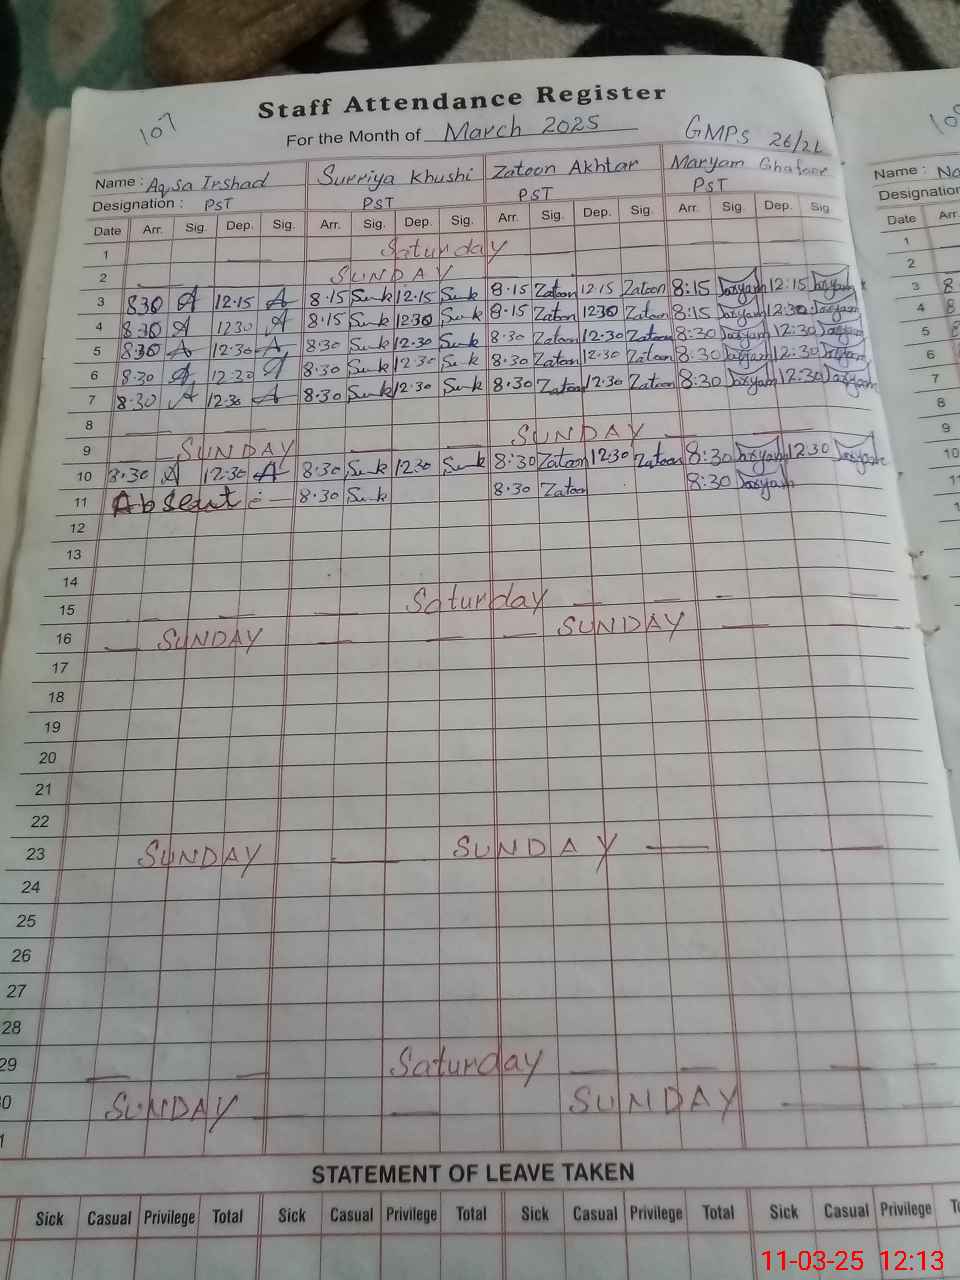 Staff Attendance Register
107
For the Month of March 2025 GMPS 26/2L
Name : Aqsa Irshad Surriya Khushi Zatoon Akhtar Maryam Ghafoor
Designation : PST PST PST PST
Date Arr. Sig. Dep. Sig. Arr. Sig. Dep. Sig. Arr. Sig. Dep. Sig. Arr. Sig. Dep. Sig.
1 Saturday
2 SUNDAY
3 8.30 A 12.15 A 8.15 12.15 8.15 Zatoon 12.15 Zatoon 8:15 12:15
4 8.30 A 12.30 A 8.15 12.30 8.15 Zatoon 12.30 Zatoon 8:15 12:30
5 8.30 A 12.30 A 8.30 12.30 8.30 Zatoon 12.30 Zatoon 8:30 12:30
6 8.30 A 12.30 A 8.30 12.30 8.30 Zatoon 12.30 Zatoon 8:30 12:30
7 8.30 A 12.30 A 8.30 12.30 8.30 Zatoon 12.30 Zatoon 8:30 12:30
8
9 SUNDAY SUNDAY
10 8.30 A 12.30 A 8.30 12.30 8:30 Zatoon 12.30 Zatoon 8:30 12:30
11 Absent 8.30 8.30 Zatoon 8:30
12
13
14
15 Saturday
16 SUNDAY SUNDAY
17
18
19
20
21
22
23 SUNDAY SUNDAY
24
25
26
27
28
29 Saturday
0 SUNDAY SUNDAY
1
STATEMENT OF LEAVE TAKEN
Sick Casual Privilege Total Sick Casual Privilege Total Sick Casual Privilege Total Sick Casual Privilege
Name :
Designation
Date Arr.
1
2
3
4
5
6
7
8
9
10
11-03-25 12:13